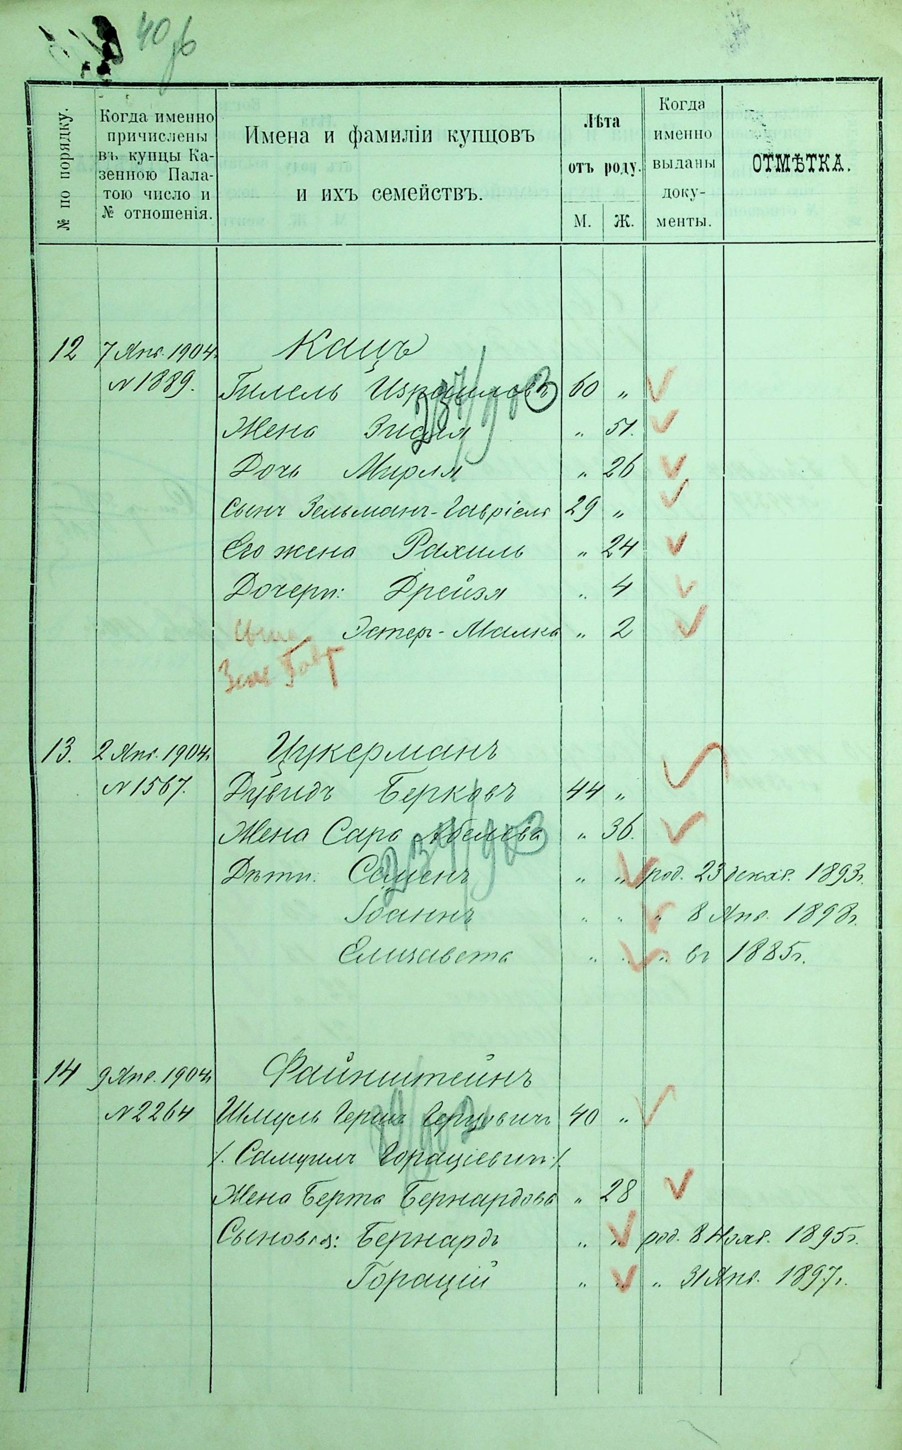 40
№ по порядку.
Когда именно
причислены
въ купцы Ка-
зенною Пала-
тою число и
№ отношенія.
Имена и фамиліи купцовъ
и ихъ семействъ.
Лѣта
отъ роду.
М. Ж.
Когда
именно
выданы
доку-
менты.
ОТМѢТКА.
12 7 Янв. 1904 Кацъ
N 1889. Гилель Израилевъ 60 „
Жена Зисля „ 51.
Дочь Мирля „ 26
Сынъ Зельманъ-Гавріель 29 „
Его жена Рахиль „ 24
Дочери: Дрейзя „ 4
Эстеръ-Малка „ 2
13. 2 Янв. 1904 Цукерманъ
N 1567. Дувидъ Берковъ 44 „
Жена Сара Абелева „ 36.
Дѣти. Семенъ „ „ род. 23 декаб. 1893г.
Іоаннъ „ „ „ 8 Янв. 1898г.
Елизавета „ „ „ въ 1885г.
14 9 Янв. 1904 Файнштейнъ
N 2264 Шмуль Гершъ Герцовичъ 40 „
/. Самуилъ Гораціевичъ ./.
Жена Берта Бернардова „ 28
Сыновья: Бернардъ „ „ род. 8 Нояб. 1895г.
Горацій „ „ „ 31 Янв. 1897г.